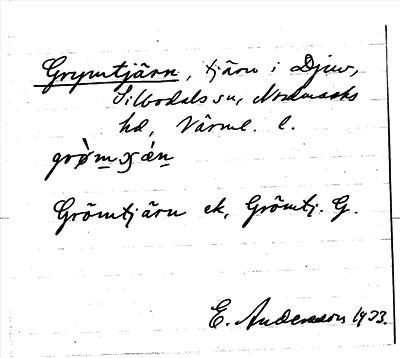 Grymtjärn, tjärn i Djuv,
Silbodals sn, Nordmarks
hd, Värml. l.
Grömtjärn ek, Grömtj. G.
E. Andersson 1933.